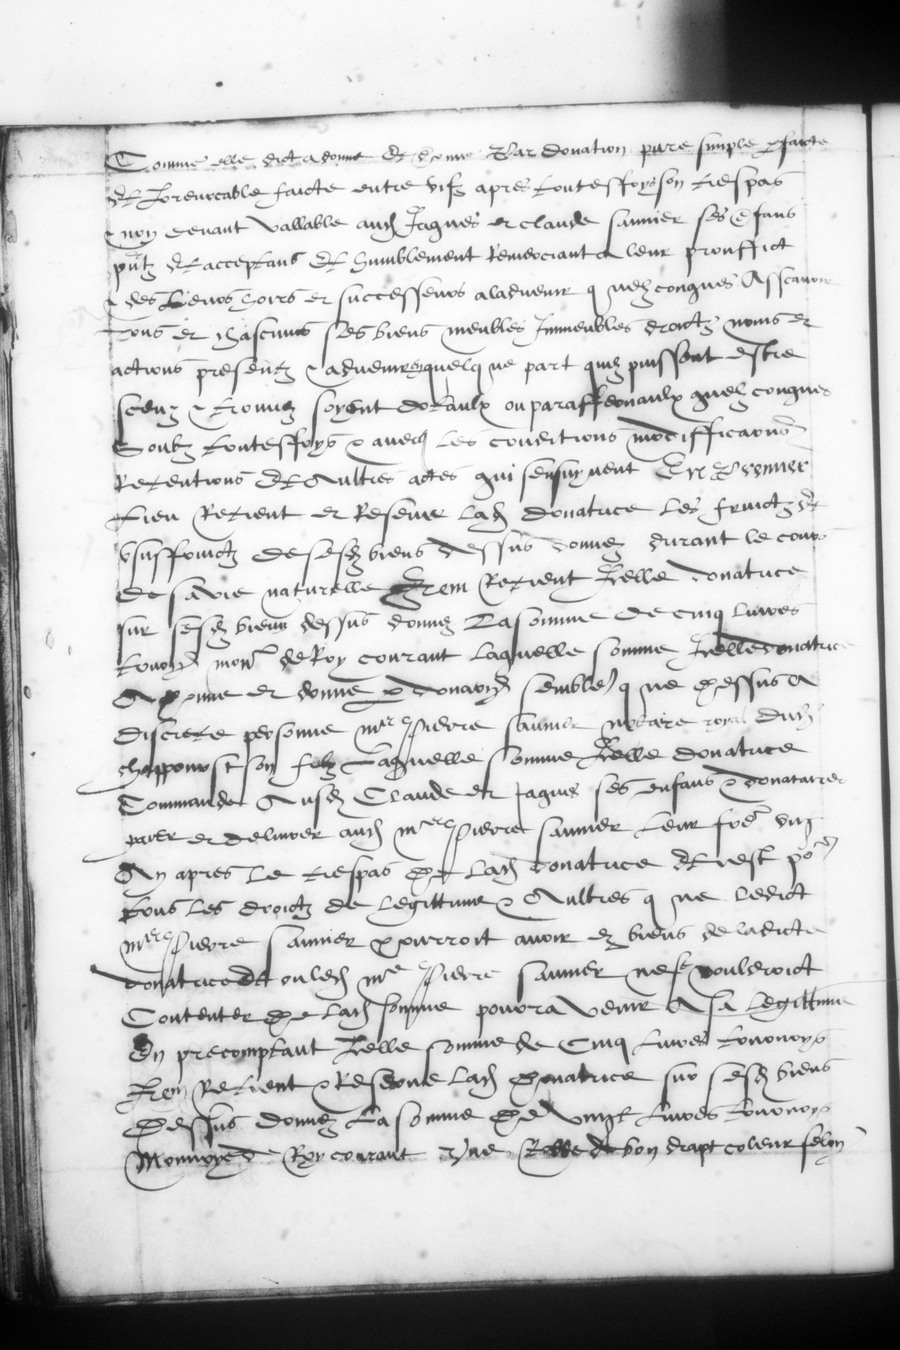 Comme elle dict a donne et donne Par donation pure simple p̱faicte
Et Irrevocable faicte entre vifz apres toutesfoys son trespas
Moyenant vallable ausd Jaques et claude saunier ses enfans
pntz Et acceptans Et humblement Remerciant a leur prouffict
& des leurs hoirs et successeurs aladvenir q uelzconques Asscavoir
Tous et chascuns ses biens meubles Immeubles droictz noms et
actions presentz & advenir en quelq ue part quilz puissent estre
sceuz & trouvez soyent dotaulx ou paraffernaulx quelzconques
Soubz toutesfoys & avecq les conditions modifficaons
Retentions Et Aultres actes qui sensuyvent En Premier
Lieu Retient et Reserve lad donatrice les fruictz Et
Vsuffruictz de sesd biens dessus donnez durant le cours
de sa vie naturelle Item Retient Icelle donatrice
sur sesd biens dessus donnez La somme de cinq livres
tournois mon de Roy courant laquelle somme Icelle donatrice
A donne et donne p donation semble q ue dessus A
discrete personne mre Pierre saunier notaire royal dud
chapponost son filz Laquelle somme Icelle donatrice
Commande Ausd Claude et Jaques ses enfans & donataires
paier et delivrer aud mre Pierre saunier leur frere ung
An apres le trespas de lad donatrice Et c'est po
tous les droictz de legittime & Aultres q ue ledict
mre Pierre saunier pourroit avoir ez biens de ladicte
donatrice Et ou led mre Pierre saunier ne se vouldroict
Contenter de lad somme pourra venir A sa legittime
En precomptant Icelle somme de Cinq livres tournoys
Item Retient & Reserve lad donatrice sur sesd biens
dessus donnez La somme de vingt livres tournoys
Monnoye de Roy courant Vne Robbe de bon drapt coleur selon